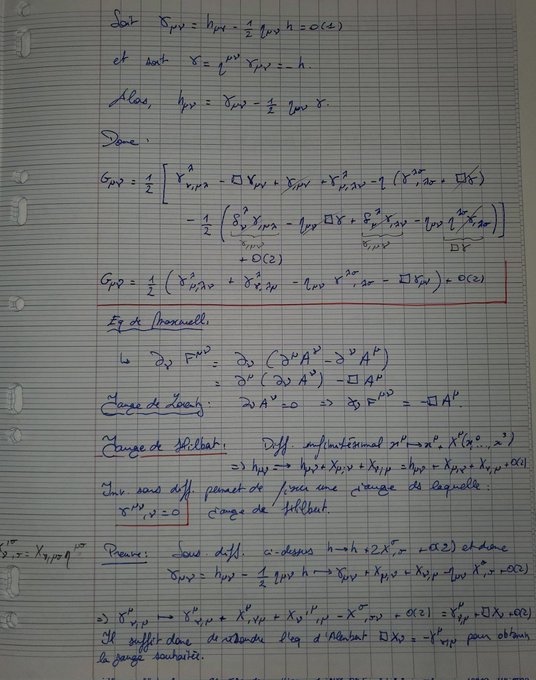 Soit γ_μν = h_μν - 1/2 η_μν h = O(1)
et soit γ = η^μν γ_μν = -h.
Alors, h_μν = γ_μν - 1/2 η_μν γ.
Donc :
G_μν = 1/2 [ γ^λ_ν,μλ - □γ_μν + γ,μν + γ^λ_μ,λν - η (γ^λσ_,λσ + □γ)
- 1/2 ( δ^λ_ν γ,μλ - η_μν □γ + δ^λ_μ γ,λν - η_μν η^λσ γ,λσ ) ]
γ,μν γ,μν □γ
+ O(2)
G_μν = 1/2 ( γ^λ_μ,λν + γ^λ_ν,λμ - η_μν γ^λσ_,λσ - □γ_μν ) + O(2)
Eq de Maxwell.
↳ ∂_ν F^μν = ∂_ν (∂^μ A^ν - ∂^ν A^μ)
= ∂^μ (∂_ν A^ν) - □A^μ
Jauge de Lorentz : ∂_ν A^ν = 0 ⇒ ∂_ν F^μν = -□A^μ.
Jauge de Hilbert : Diff. infinitésimal x^μ → x^μ + X^μ(x^0 ... x^3)
⇒ h_μν → h_μν + X_μ,ν + X_ν,μ = h_μν + X_μ,ν + X_ν,μ + O(2)
Inv. sous diff. permet de fixer une jauge ds laquelle :
γ^μν_,ν = 0 jauge de Hilbert.
X^,σ_ν,σ = X_ν,μσ η^μσ
Preuve : Sous diff. ci-dessus h → h + 2X^σ_,σ + O(2) et donc
γ_μν = h_μν - 1/2 η_μν h → γ_μν + X_μ,ν + X_ν,μ - η_μν X^σ_,σ + O(2)
⇒ γ^μ_ν,μ → γ^μ_ν,μ + X^μ_,νμ + X_ν^,μ_,μ - X^σ_,σν + O(2) = γ^μ_ν,μ + □X_ν + O(2)
Il suffit donc de résoudre l'eq d'Alembert □X_ν = -γ^μ_ν,μ pour obtenir
la jauge souhaitée.